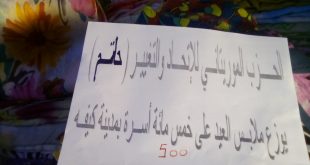 الحزب الموريتاني للإتحاد والتغيير ( حاتم )
يوزع ملابس العيد على خمس مائة أسرة بمدينة كيفه
500